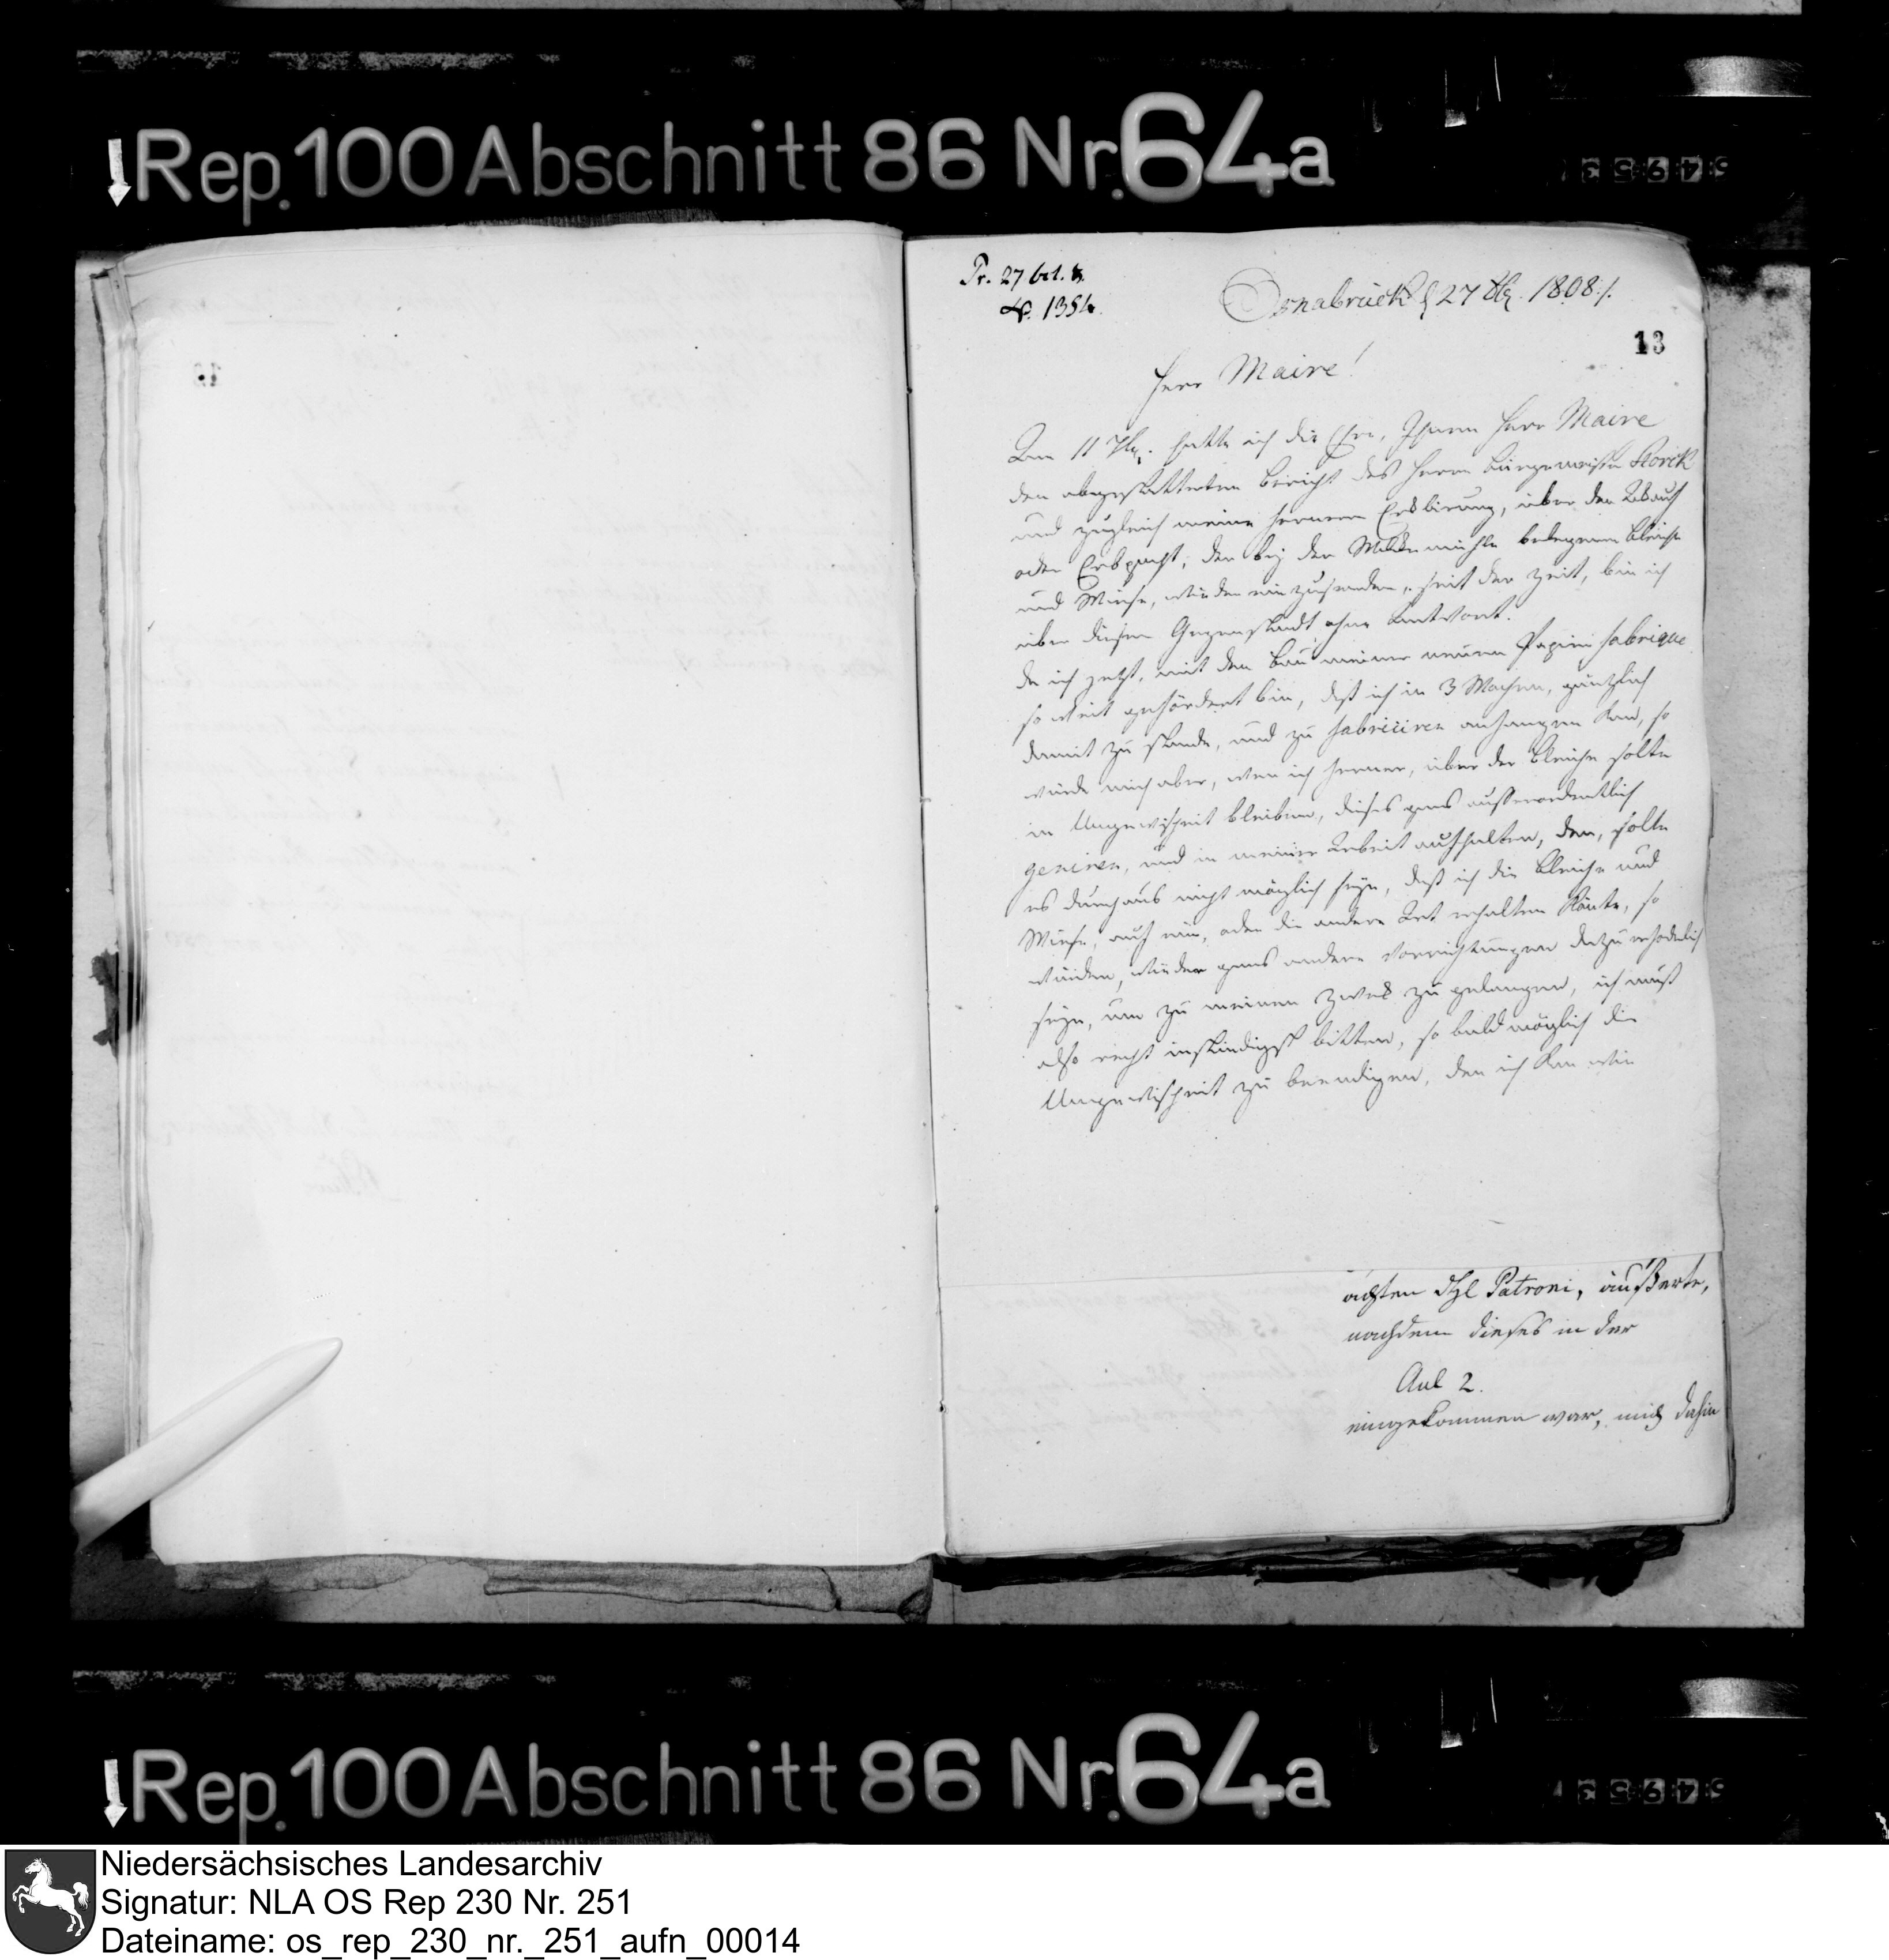 Rep. 100 Abschnitt 86 Nr. 64a
Pr. 27 Oct. 8.
N. 1354.
Osnabrück d 27 8br. 1808 /.
13
Herr Maire!
Am 11 7br. hatte ich die Ehre, Ihnen Herr Maire
den abgestatteten Bericht des Herrn Bürgermeister Storck
und zugleich meine fernere Erklärung, über den Ankauf
oder Erbpacht, der bey der Mühle belegenen Bleiche
und Wiese, wieder einzusenden, seit der Zeit, bin ich
über diesen Gegenstandt ohne Antwort.
da ich jetzt, mit den Bau meiner neuen Papier fabrique
so weit gefördert bin, daß ich in 3 Wochen, gäntzlich
damit zu stande, und zu fabriciren anfangen kan, so
würde mich aber, wen ich ferner, über der Bleiche solte
in Ungewisheit bleiben, dieses gans ausserordentlich
geniren, und in meiner Arbeit aufhalten, den, solte
es durchaus nicht möglich seyn, daß ich die Bleiche und
Wiese, auf ein, oder die andere Art erhalten könte, so
würden, wieder gans andere Vorrichtungen dazu erforderlich
seyn, um zu meinen Zwek zu gelangen, ich muß
also recht inständigst bitten, so bald möglich die
Ungewisheit zu beendigen, den ich kan wie
ächsten Patroni, äußerte,
nachdem dieses in der
Anl 2.
eingekommen war, mich dahin
Rep. 100 Abschnitt 86 Nr. 64a
Niedersächsisches Landesarchiv
Signatur: NLA OS Rep 230 Nr. 251
Dateiname: os_rep_230_nr._251_aufn_00014